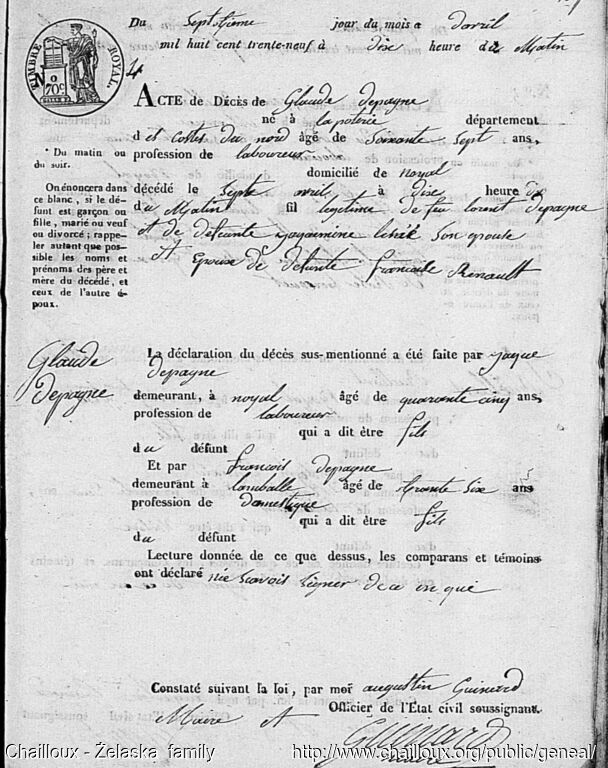 Du Septstieme jour du mois d davril
mil huit cent trente-neuf à dixe heure de Matin
TIMBRE ROYAL
70c
4
ACTE de Décès de Glaude depagne
né à la potérie département
d es costes du nord âgé de Soixante Sept ans,
profession de laboureur
domicilié de noyal
décédé le Septe avril à dixe heure du
du Matin fil legitime de feu lorant depagne
Et de defunte jaquemine Son epouse
Et Epouse de defunte francoise Renault
* Du matin ou
du soir.
On énoncera dans
ce blanc, si le dé-
funt est garçon ou
fille, marié ou veuf
ou divorcé; rappe-
ler autant que pos-
sible les noms et
prénoms des père et
mère du décédé, et
ceux de l'autre é-
poux.
Glaude
depagne
La déclaration du décès sus-mentionné a été faite par jaque
depagne
demeurant, à noyal âgé de quarante cinq ans,
profession de laboureur
qui a dit être fils
du défunt
Et par francois depagne
demeurant à lamballe âgé de trante Sixe ans
profession de domestique
qui a dit être fils
du défunt
Lecture donnée de ce que dessus, les comparans et témoins
ont déclaré nie Scavoir Signer de ce in qué
Constaté suivant la loi, par moi augustin Guinard
Maire Et Officier de l'État civil soussignant.
Guinard
maire
Chailloux - Żelaska family http://www.chailloux.org/public/geneal/